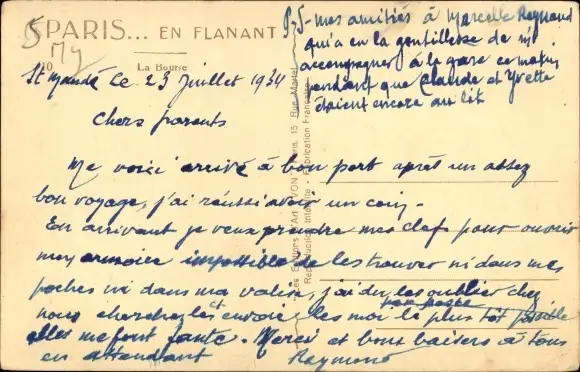 PARIS... EN FLANANT
10
La Bourse
P.S - mes amitiés à Marcelle Raynaud
qui a eu la gentillesse de m'
accompagner à la gare ce matin
pendant que Claude et Yvette
étaient encore au lit
St Mandé le 23 Juillet 1934
Chers parents
Me voici arrivé à bon port après un assez
bon voyage, j'ai réussi avoir un coin.
En arrivant je veux prendre mes clefs pour ouvrir
mon armoire impossible de les trouver ni dans mes
poches ni dans ma valise, j'ai du les oublier chez
nous cherchez les et envoie les moi le plus tôt possible
par poste
elles me font faute. Merci et bons baisers à tous
en attendant Raymond
Les Editions d'Art YVON, Paris, 15 Rue Martel
Reproduction Interdite - Fabrication Française